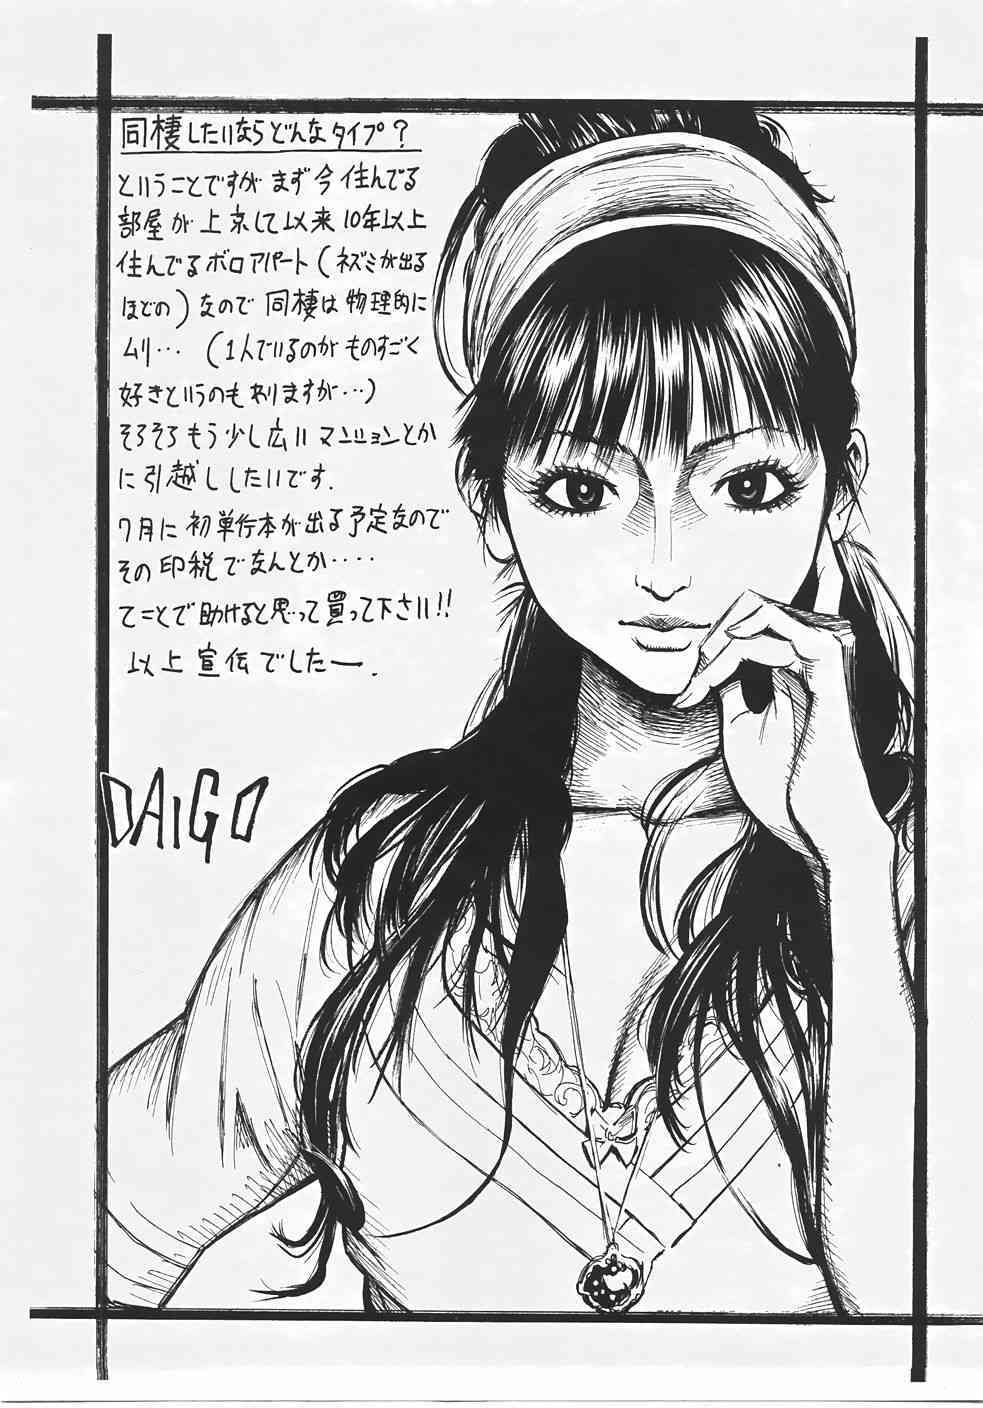 同棲したいならどんなタイプ?
ということですが まず今住んでる
部屋が上京して以来10年以上
住んでるボロアパート(ネズミが出る
ほどの)なので 同棲は物理的に
ムリ… (1人でいるのが ものすごく
好きというのもありますが…)
そろそろもう少し広いマンションとか
に引越ししたいです.
7月に初単行本が出る予定なので
その印税でなんとか‥‥
てことで助けると思って買って下さい!!
以上宣伝でしたー.
DAIGO